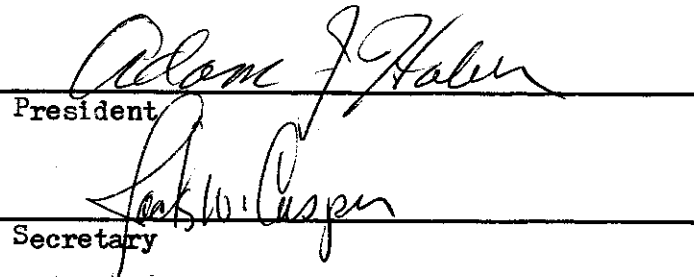 Adam J Haber
President
Jack W. Casper
Secretary